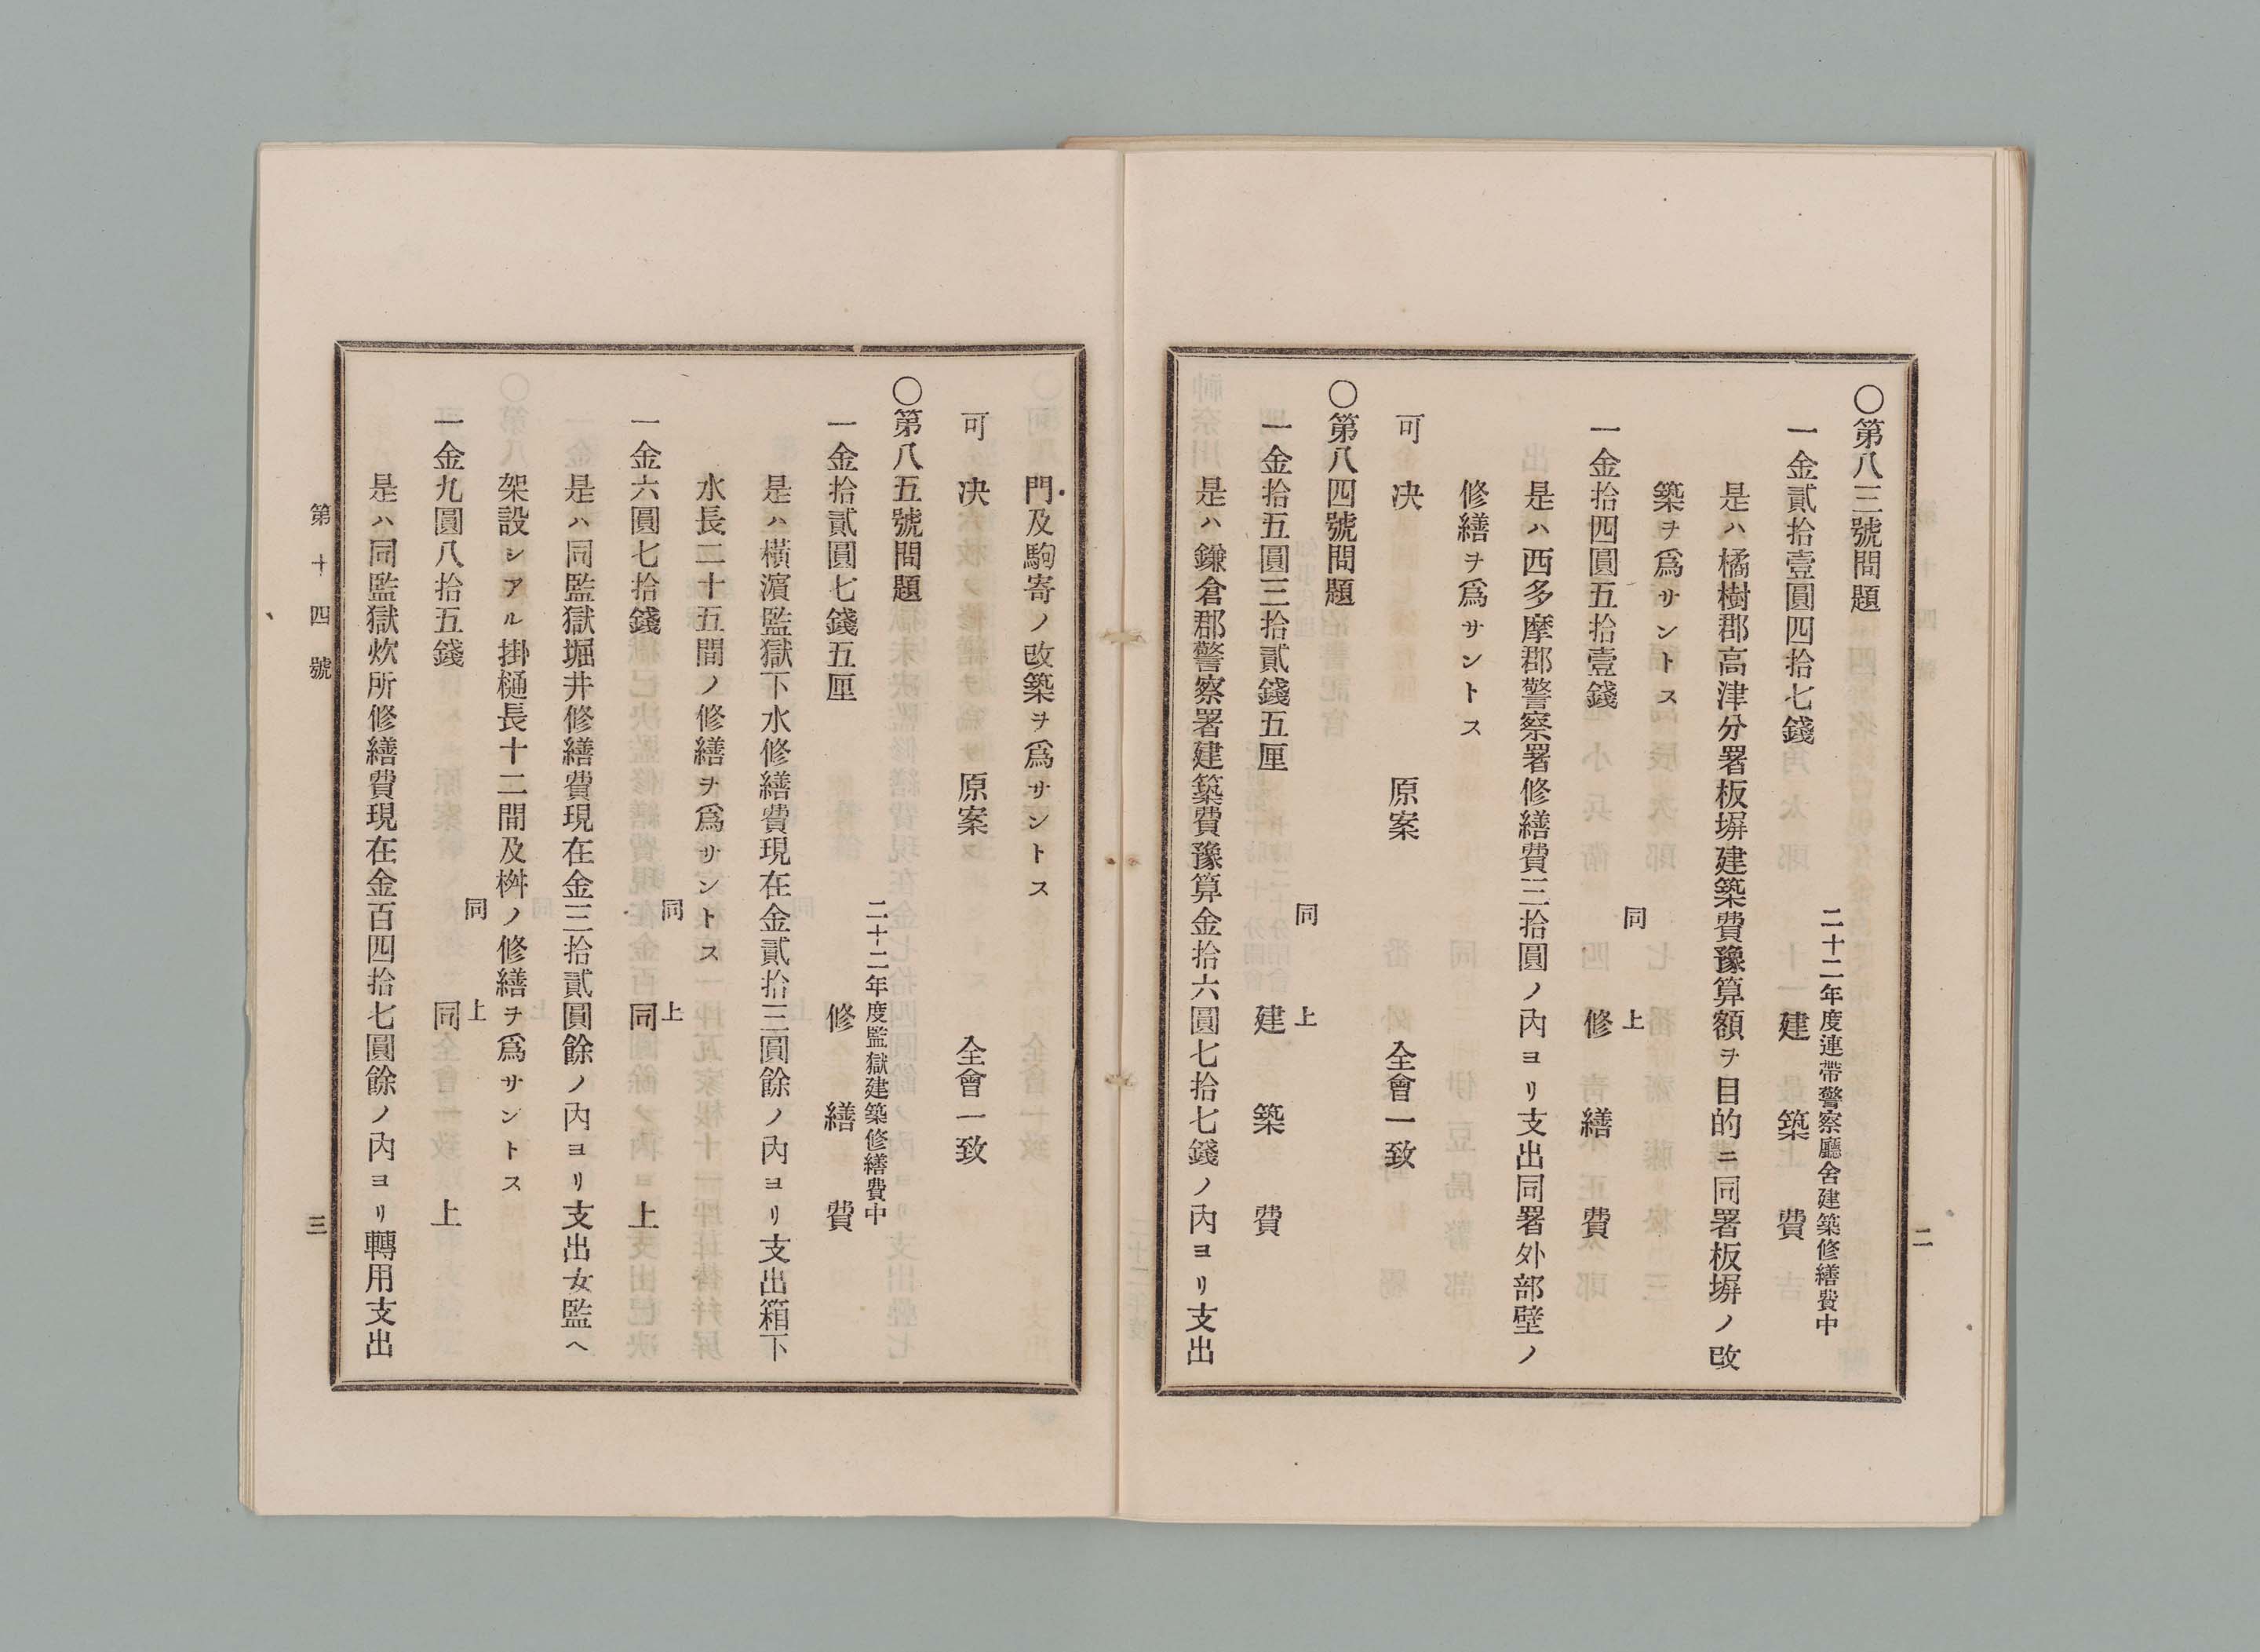 〇第八三號問題
一金貳拾壹圓四拾七錢
二十二年度連帶警察廳舍建築修繕費中
建築費
是ハ橘樹郡高津分署板塀建築費豫算額ヲ目的ニ同署板塀ノ改
築ヲ爲サントス
一金拾四圓五拾壹錢
同上
修繕費
是ハ西多摩郡警察署修繕費三拾圓ノ內ヨリ支出同署外部壁ノ
修繕ヲ爲サントス
可決 原案 全會一致
〇第八四號問題
一金拾五圓三拾貳錢五厘
同上
建築費
是ハ鎌倉郡警察署建築費豫算金拾六圓七拾七錢ノ內ヨリ支出
二
門及駒寄ノ改築ヲ爲サントス
可決 原案 全會一致
〇第八五號問題
一金拾貳圓七錢五厘
二十二年度監獄建築修繕費中
修繕費
是ハ橫濱監獄下水修繕費現在金貳拾三圓餘ノ內ヨリ支出箱下
水長二十五間ノ修繕ヲ爲サントス
一金六圓七拾錢
同上
同上
是ハ同監獄堀井修繕費現在金三拾貳圓餘ノ內ヨリ支出女監ヘ
架設シアル掛樋長十二間及桝ノ修繕ヲ爲サントス
一金九圓八拾五錢
同上
同上
是ハ同監獄炊所修繕費現在金百四拾七圓餘ノ內ヨリ轉用支出
第十四號
三